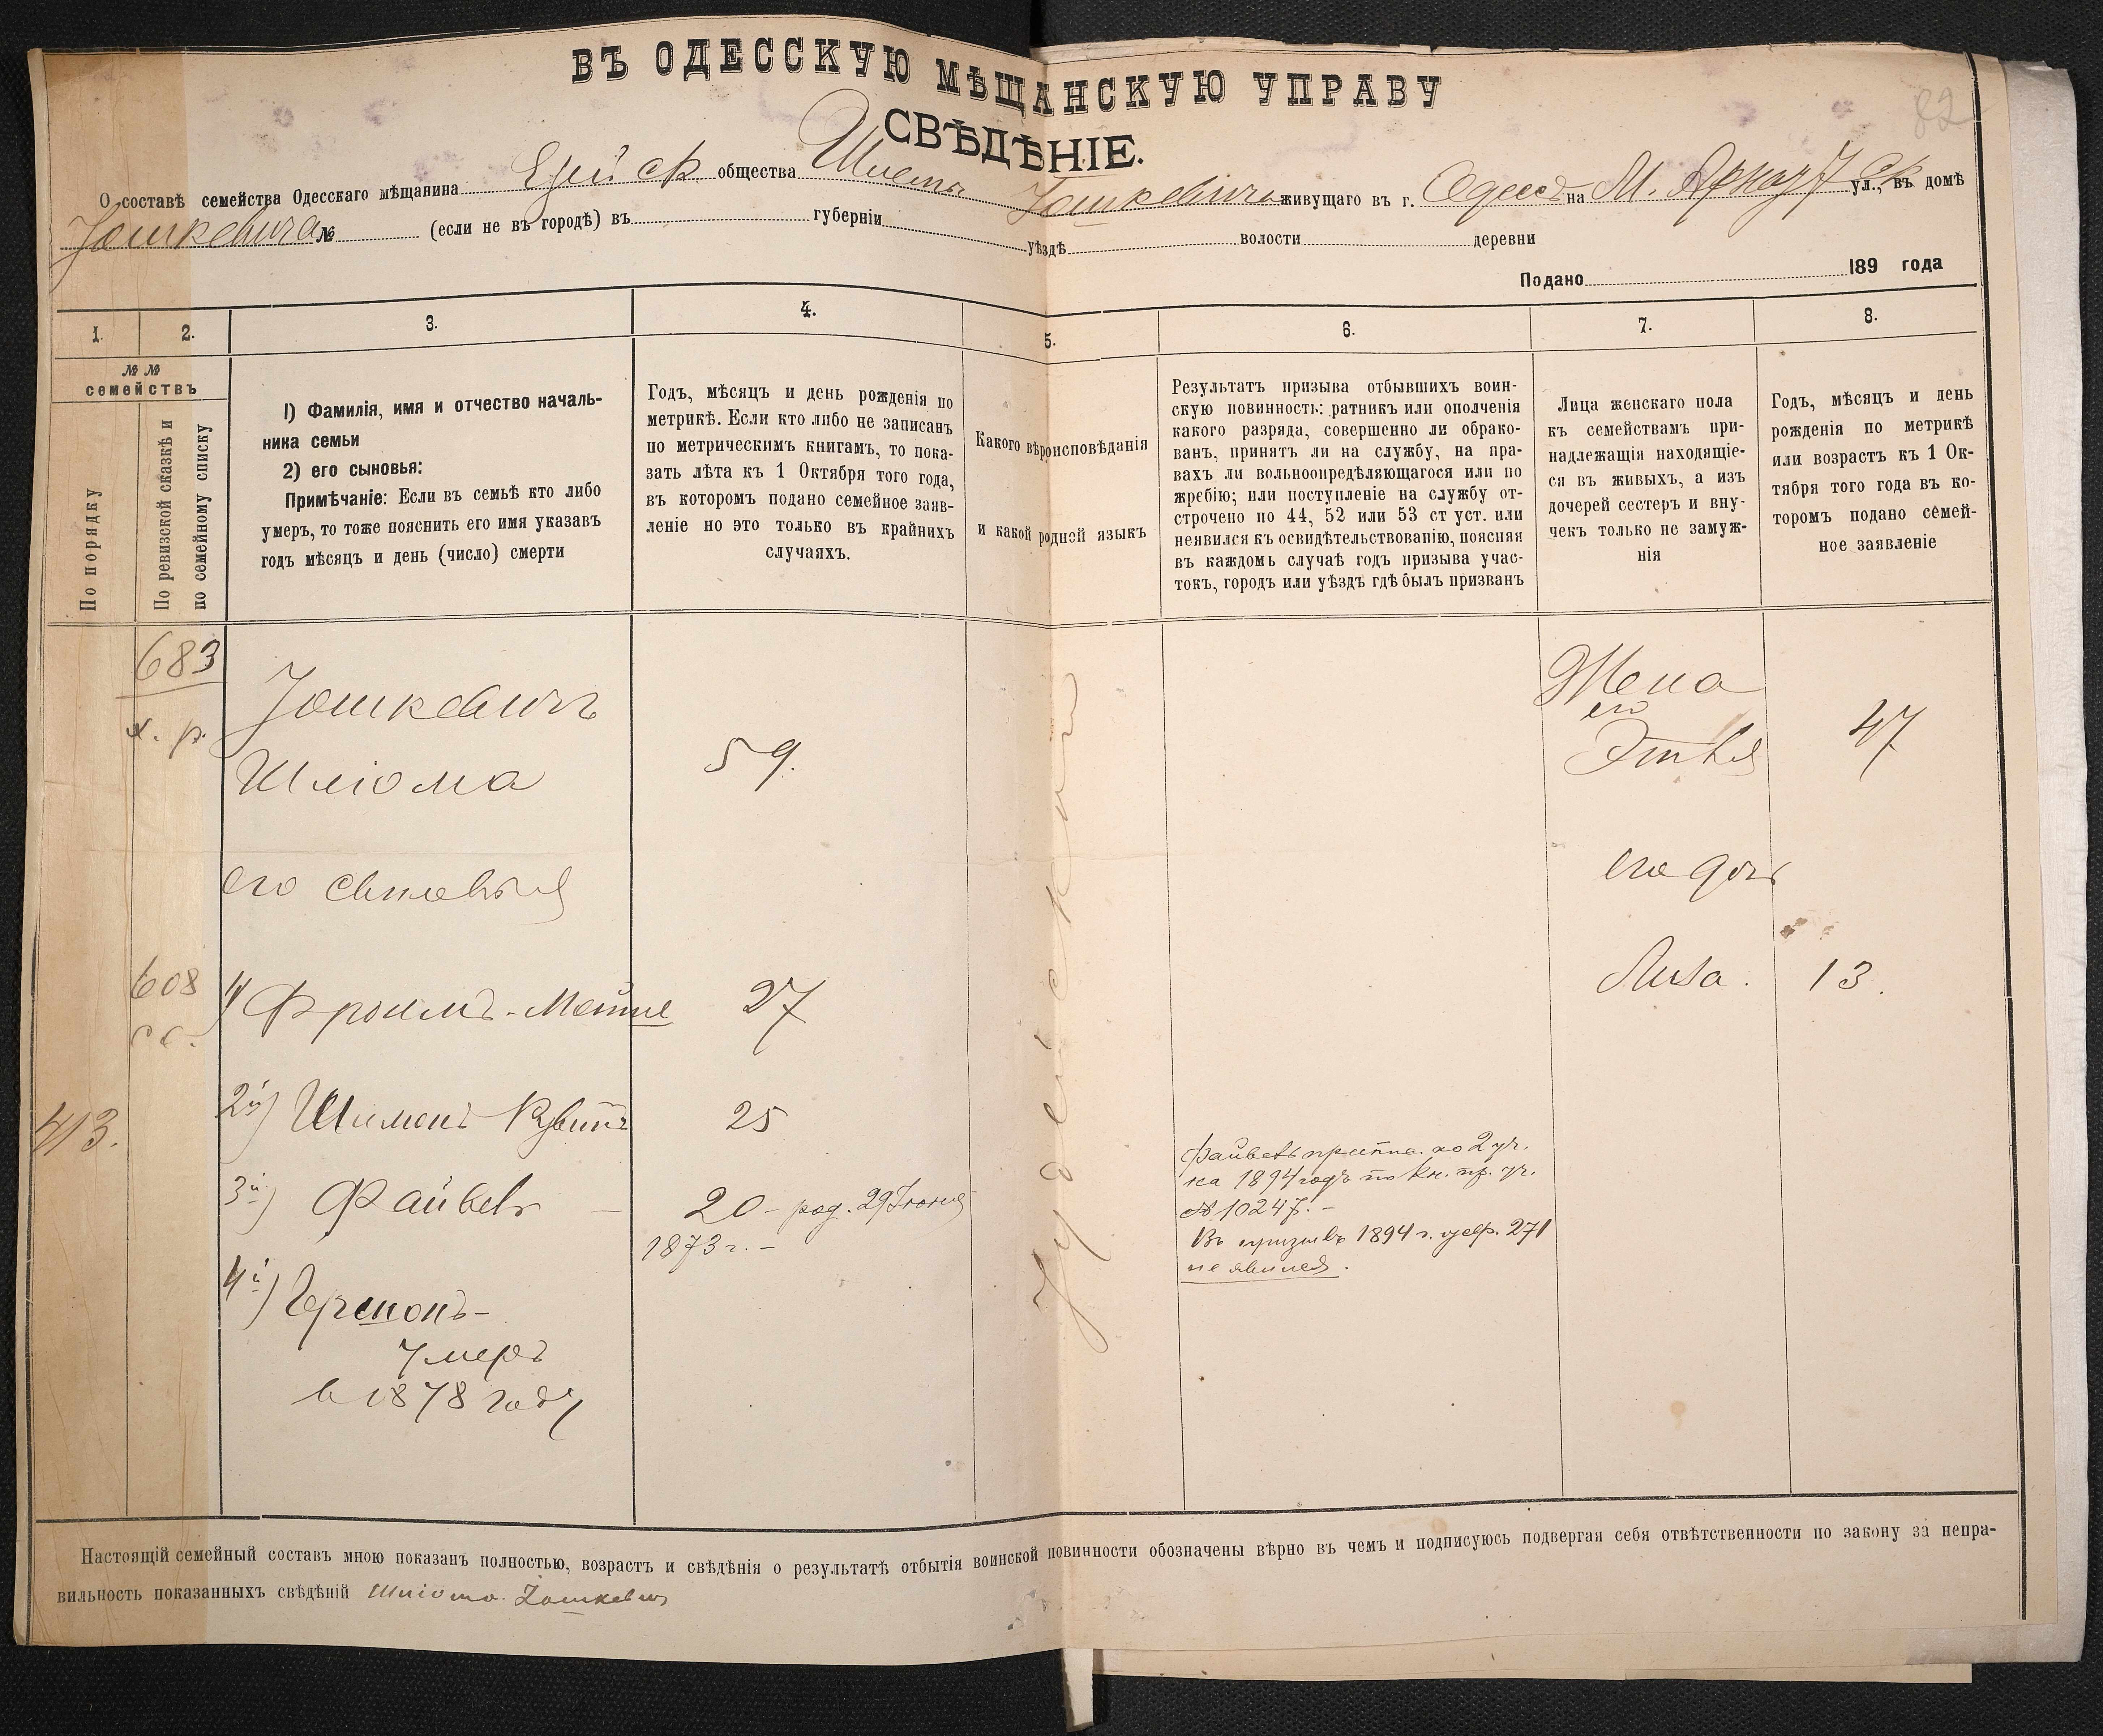 82
ВЪ ОДЕССКУЮ МѢЩАНСКУЮ УПРАВУ
СВѢДѢНІЕ.
О составѣ семейства Одесскаго мѣщанина общества Шлемы Іошкевича живущаго въ г. Одессѣ на М. Арнаут ск ул., въ домѣ
Іошкевича № (если не въ городѣ) въ губерніи уѣздѣ волости деревни
Подано 189 года
1. 2. 3. 4. 5. 6. 7. 8.
№ №
семействъ
По порядку
По ревизской сказкѣ и
по семейному списку
1) Фамилія, имя и отчество началь-
ника семьи
2) его сыновья:
Примѣчаніе: Если въ семьѣ кто либо
умеръ, то тоже пояснить его имя указавъ
годъ мѣсяцъ и день (число) смерти
Годъ, мѣсяцъ и день рожденія по
метрикѣ. Если кто либо не записанъ
по метрическимъ книгамъ, то пока-
зать лѣта къ 1 Октября того года,
въ которомъ подано семейное заяв-
леніе но это только въ крайнихъ
случаяхъ.
Какого вѣроисповѣданія
и какой родной языкъ
Результатъ призыва отбывшихъ воин-
скую повинность: ратникъ или ополченія
какого разряда, совершенно ли обрако-
ванъ, принятъ ли на службу, на пра-
вахъ ли вольноопредѣляющагося или по
жребію; или поступленіе на службу от-
строчено по 44, 52 или 53 ст уст. или
неявился къ освидѣтельствованію, поясняя
въ каждомъ случаѣ годъ призыва учас-
токъ, городъ или уѣздъ гдѣ былъ призванъ
Лица женскаго пола
къ семействамъ при-
надлежащія находящіе-
ся въ живыхъ, а изъ
дочерей сестеръ и вну-
чекъ только не замуж-
нія
Годъ, мѣсяцъ и день
рожденія по метрикѣ
или возрастъ къ 1 Ок-
тября того года въ ко-
торомъ подано семей-
ное заявленіе
683
х. р.
Іошкевичъ
Шліома
59.
Іудейскаго
Жена
его
Этля
47
его сыновья
его дочь
Лиза. 13.
608
сс.
1) Фроимъ-Мойше 27
413.
2й) Шимонъ 25
3й) Файвель – 20 – род. 29 Іюня
1873 г. –
Файвель припис. ко 2 уч.
на 1894 годъ по кн. пр. уч.
№ 10247. –
Въ призывъ 1894 г. 271
не явился.
4й) Гершонъ –
умеръ
в 1878 году
Настоящій семейный составъ мною показанъ полностью, возрастъ и свѣдѣнія о результатѣ отбытія воинской повинности обозначены вѣрно въ чемъ и подписуюсь подвергая себя отвѣтственности по закону за непра-
вильность показанныхъ свѣдѣній Шліома Іошкевич